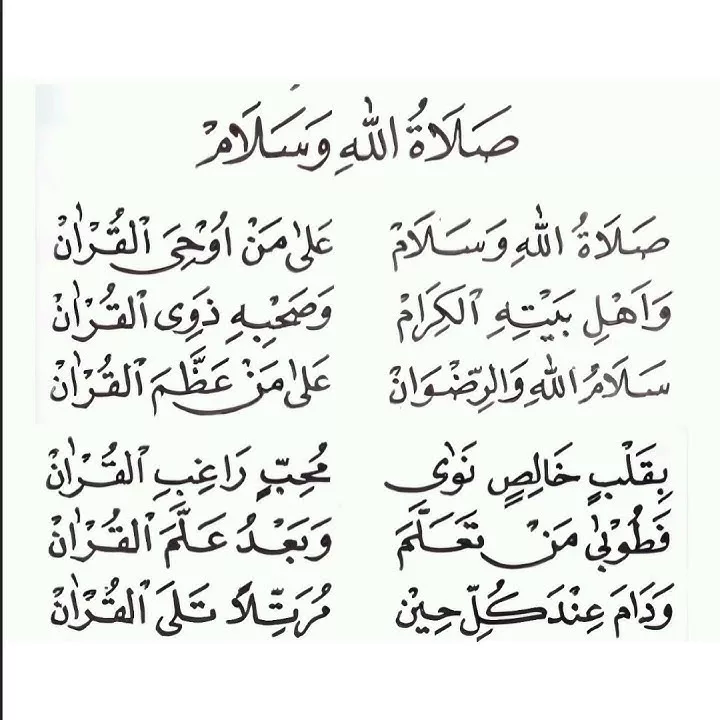 صَلَاةُ اللهِ وَسَلَامْ
صَلَاةُ اللهِ وَسَلَامْ عَلَى مَنْ اُوْحِيَ الْقُرْاٰنْ
وَاَهْلِ بَيْتِهِ الْكِرَامْ وَصَحْبِهِ ذَوِى الْقُرْاٰنْ
سَلَامُ اللهِ وَالرِّضْوَانْ عَلَى مَنْ عَظَّمَ الْقُرْاٰنْ
بِقَلْبٍ خَالِصٍ نَوٰى مُحِبٍّ رَاغِبِ الْقُرْاٰنْ
فَطُوْبٰى مَنْ تَعَلَّمَ وَبَعْدُ عَلَّمَ الْقُرْاٰنْ
وَدَامَ عِنْدَ كُلِّ حِيْنْ مُرَتِّلًا تَلَى الْقُرْاٰنْ